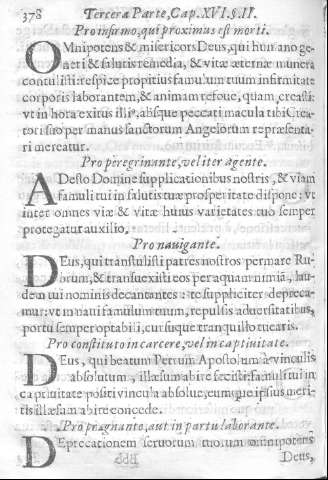 378 Tercera Parte, Cap. XVI. §. II.
Pro infirmo, qui proximus est morti.
OMnipotens & misericors Deus, qui humano ge-
neri & salutis remedia, & vitæ æternæ munera
contulisti: respice propitius famulum tuum infirmitate
corporis laborantem, & animam refoue, quam creasti:
vt in hora exitus illius absque peccati macula tibi Crea-
tori suo per manus sanctorum Angelorum repræsenta-
ri mereatur.
Pro peregrinante, vel iter agente.
ADesto Domine supplicationibus nostris, & viam
famuli tui in salutis tuæ prosperitate dispone: vt
inter omnes viæ & vitæ huius varietates tuo semper
protegatur auxilio,
Pro nauigante.
DEus, qui transtulisti patres nostros per mare Ru-
brum, & transuexisti eos per aquam nimiã, lau-
dem tui nominis decantantes: te suppliciter depreca-
mur: vt in naui famulum tuum, repulsis aduersitatibus,
portu semper optabili, cursuque tranquillo tuearis.
Pro constituto in carcere, vel in captiuitate.
DEus, qui beatum Petrum Apostolum à vinculis
absolutum, illæsum abire fecisti: famuli tui in
captiuitate positi vincula absolue, eumque ipsius meri-
tis illæsum abire concede.
Pro pragnante, aut in partu laborante.
DEprecationem seruorum tuorum omnipotens
Deus,